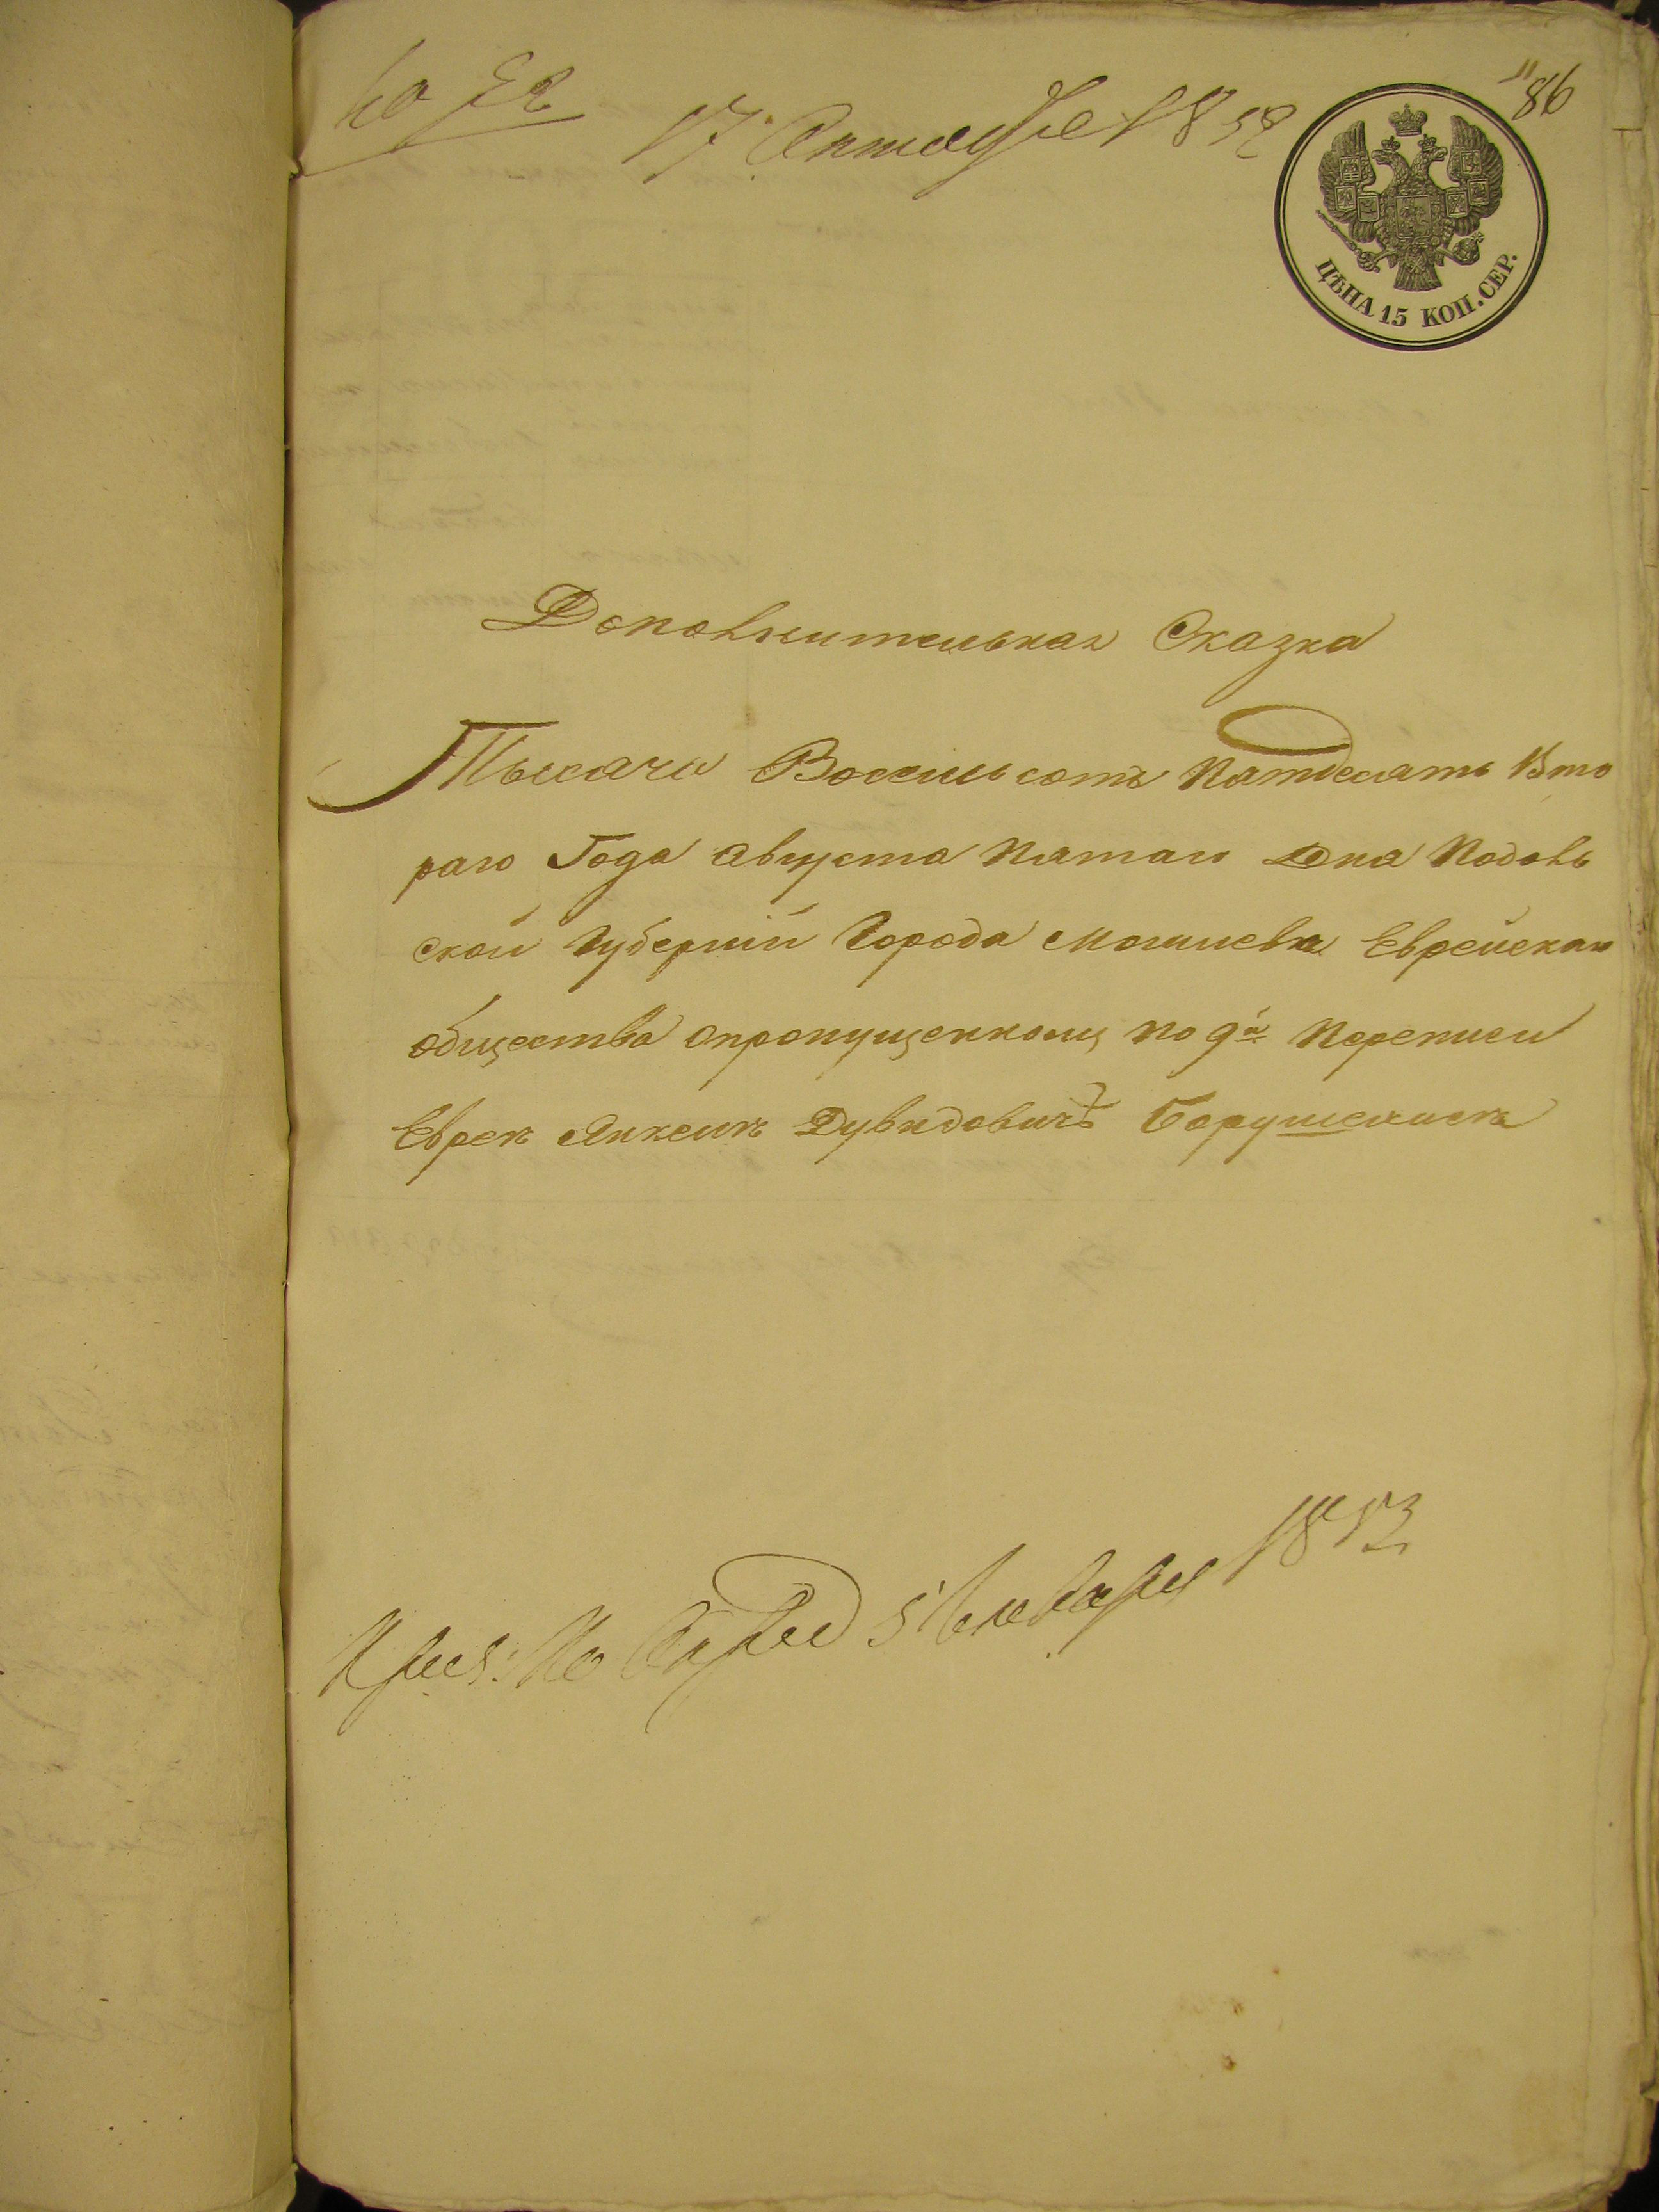 17 Октября 1852
86
ЦѢНА 15 КОП. СЕР.
Дополнительная Сказка
Тысяча Восемьсотъ Пятдесятъ Вто
раго Года Августа Пятаго Дня Подоль
ской Губерніи Города Могилева Еврейскаго
общества опропущенномъ по 9й Переписи
Еврея Янкеля Дувидовичъ Борушениса
5 Января 1853